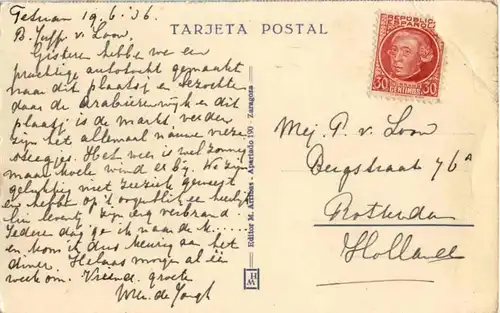 Tetuan 19.6.'36.
TARJETA POSTAL
B. Juff. v. Loon,
Gisteren hebben we een
prachtige autotocht gemaakt
naar dit plaatsje en bezochten
daar de Arabierenwijk en dit
plaatsje is de markt, verder
zijn het allemaal nauwe
steegjes. Het weer is wel zonnig
maar koele wind er bij. We zijn
gelukkig niet zeeziek geweest
en hebben op 't oogenblik een heerlijk
lui leventje, zijn erg verbrand.
Iedere dag ga ik naar de k......
en kom ik dus keurig aan het
diner. Helaas morgen al één
week om. Vriend. groeten
W. de Jongh
Editor M. Arribas - Apartado 190 - Zaragoza
REPUBLICA
ESPAÑOLA
30 CENTIMOS 30
Mej. P. v. Loon
Bergstraat 76A
Rotterdam
Holland